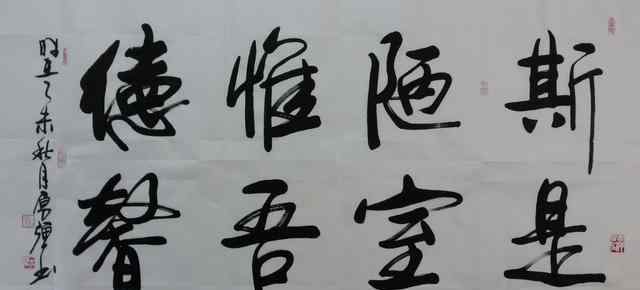 斯是
陋室
惟吾
德馨
乙未秋月 书